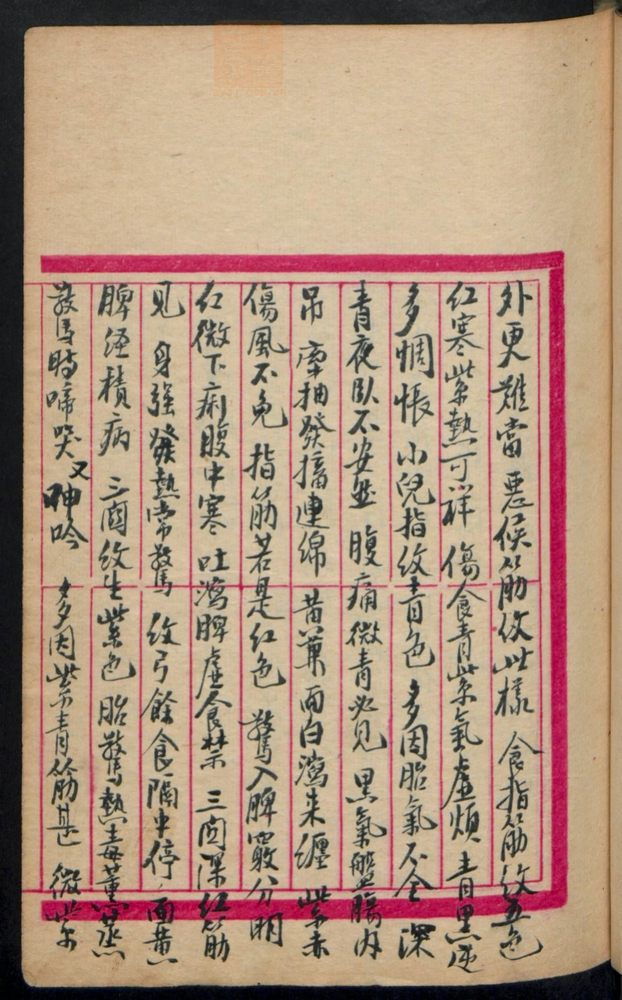 外更難當 惡候筋紋此樣 食指筋紋五色
紅寒紫熱可祥 傷食青紫氣虛煩 青黑逆
多惆悵 小兒指紋青色 多因胎氣不全 深
青夜臥不安然 腹痛微青必見 黑氣盤腸內
吊 抽發搐連綿 黃兼面白瀉来纏 紫赤
傷風不免 指筋若是紅色 驚入脾竅分明
紅微下痢腹中寒 吐瀉脾虛食禁 三関深红筋
見 身強發熱常驚 紋弓餘食隔中停 面黄
脾經積病 三関紋生紫色 胎驚熱毒薰蒸
驚時啼哭又呻吟 多因紫青筋甚 微紫